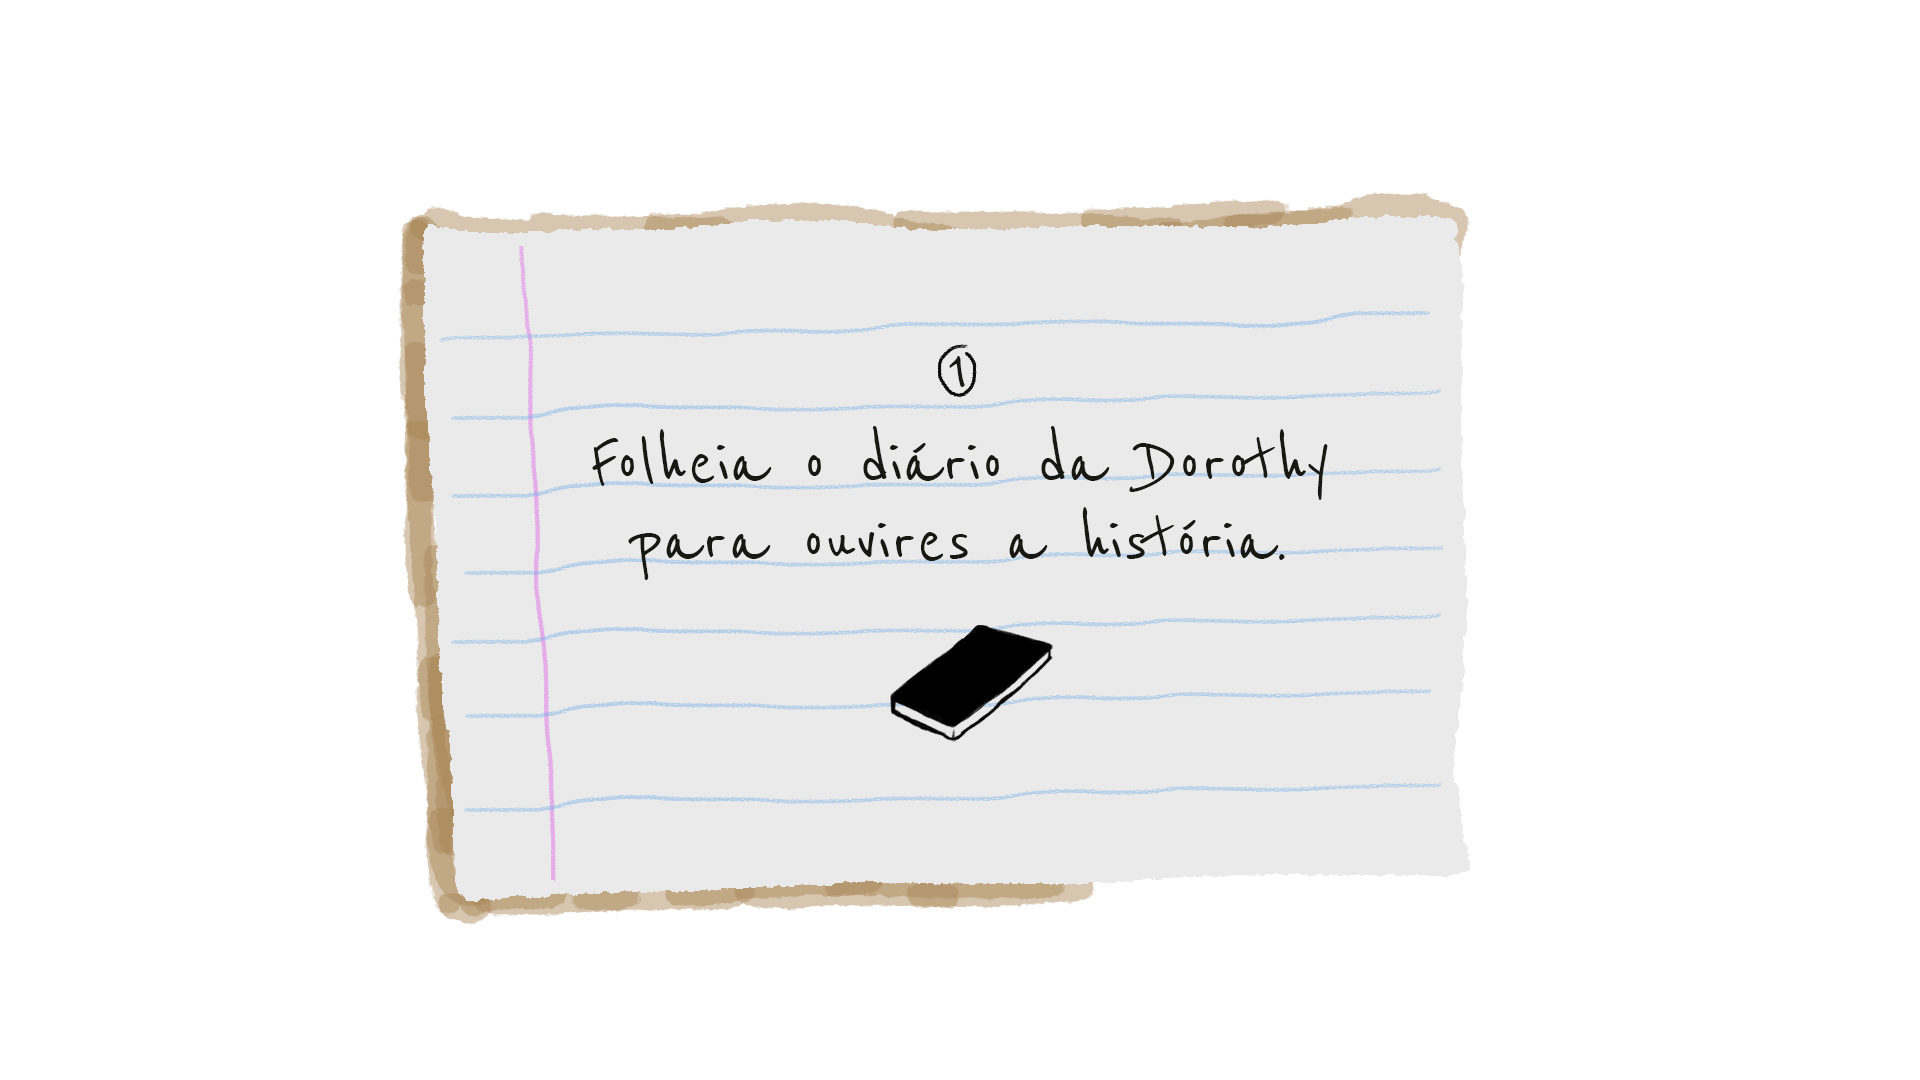 ①
Folheia o diário da Dorothy
para ouvires a história.